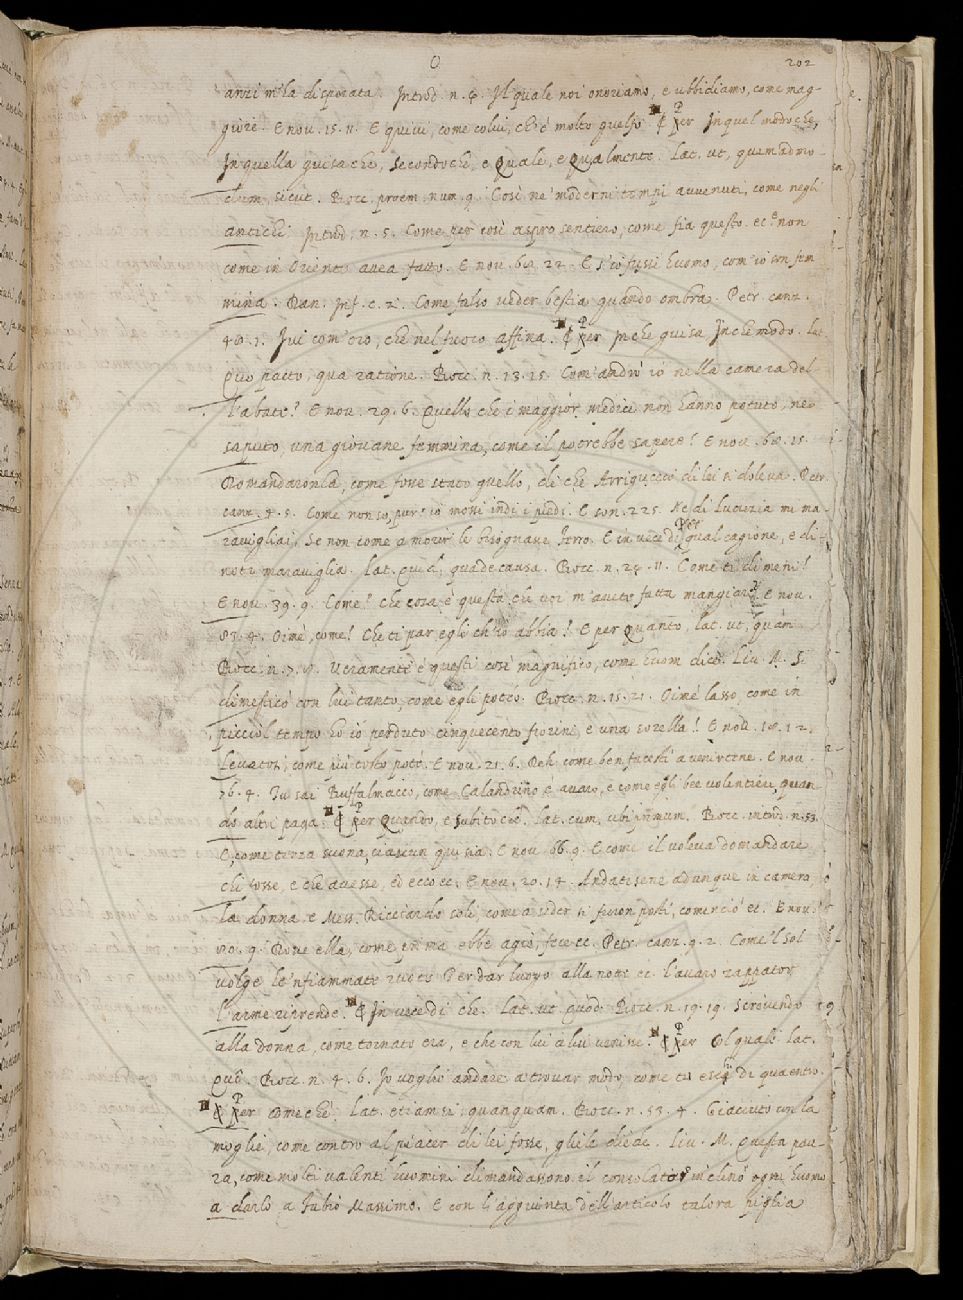 O 202
anzi m'la disperata. Introd. n. 9. Il quale noi onoriamo, e ubbidiamo, come mag-
giore. E nov. 15. 11. E quivi, come colui, ch'è molto guelfo ¶ Per In quel modo che,
In quella guisa che, Secondo che, e Quale, e Qualmente. Lat. ut, quemadmo-
dum, sicut. Bocc. proem. num. 9. Così ne' moderni tempi avvenuti, come negli
antichi Introd. n. 5. Come per così aspro sentiero, come fia questo. et e non
come in Oriente avea fatto. E nov. 60. 22. E s'io fussi huomo, com'io son fem
mina. Dan. Inf. c. 2. Come falso veder bestia quando ombra. Petr. canz.
40. 1. Ivi com'oro, che nel fuoco affina. ¶ Per In che guisa, In che modo. Lat.
Quo pacto, qua ratione. Bocc. n. 13. 15. Com'andrò io nella camera del-
l'abate? E nov. 29. 6. Quello che i maggior medici non hanno potuto, nè
saputo, una giovane femmina, come il potrebbe sapere? E nov. 68. 15.
Domandaronla, come fosse stato quello, di che Arriguccio di lei si doleva. Petr.
canz. 4. 5. Come non so, pur io mossi indi i piedi. E son. 225. Nè di Lucrezia mi ma-
ravigliai, Se non come a morir le bisognasse ferro. E in vece di Per qual cagione, e di-
nota maraviglia. Lat. Quid, qua de causa. Bocc. n. 24. 11. Come ti dimeni?
E nov. 39. 9. Come? che cosa è questa, che voi m'avete fatta mangiare? E nov.
83. 4. Oimè, come! Che ti par egli ch'io abbia? E per Quanto, lat. ut, quàm
Bocc. n. 7. 9. Veramente è questi così magnifico, come huom dice. Liv. M. S.
dimesticò con lui tanto, come egli potéo. Bocc. n. 15. 21. Oimè lasso, come in
picciol tempo ho io perduto cinquecento fiorini, e una sorella! E nov. 18. 12.
Levatosi, come più tosto potè. E nov. 21. 6. Deh come ben facesti a venirtene. E nov.
76. 4. Tu sai Buffalmacco, come Calandrino è avaro, e come egli bee volentieri quan
do altri paga. ¶ Per Quando, e Subito che. Lat. cum, ubi primum. Bocc. introd. n. 53.
E, come terza suona, ciascun qui sia. E nov. 66. 9. E come il voleva domandare
chi fosse, e che avesse, ed ecco ec. E nov. 20. 14. Andatisene adunque in camera
la donna e Mess. Ricciardo soli, come a seder si furon posti, cominciò et. E nov.
80. 9. Dove ella, come prima ebbe agio, fece ec. Petr. canz. 9. 2. Come 'l Sol
volge le 'nfiammate ruote Per dar luogo alla notte ec. l'avaro zappator
l'arme riprende. ¶ In vece di che. Lat. ut quod. Bocc. n. 19. 19. Scrivendo
alla donna, come tornato era, e che con lui a lui venisse. ¶ Per Col quale. Lat.
Quo. Bocc. n. 4. 6. Io voglio andare a trovar modo, come tu esca di qua entro.
¶ Per comechè. Lat. etiamsi, quanquam. Bocc. n. 53. 4. Giaciuto con la
moglie, come contro al piacer di lei fosse, gliela diede. Liv. M. Questa pau-
ra, come molti valenti huomini dimandassono il consolato, inclinò ogni huomo
a darlo a Fabio Massimo. E con l'aggiunta dell'articolo talora piglia